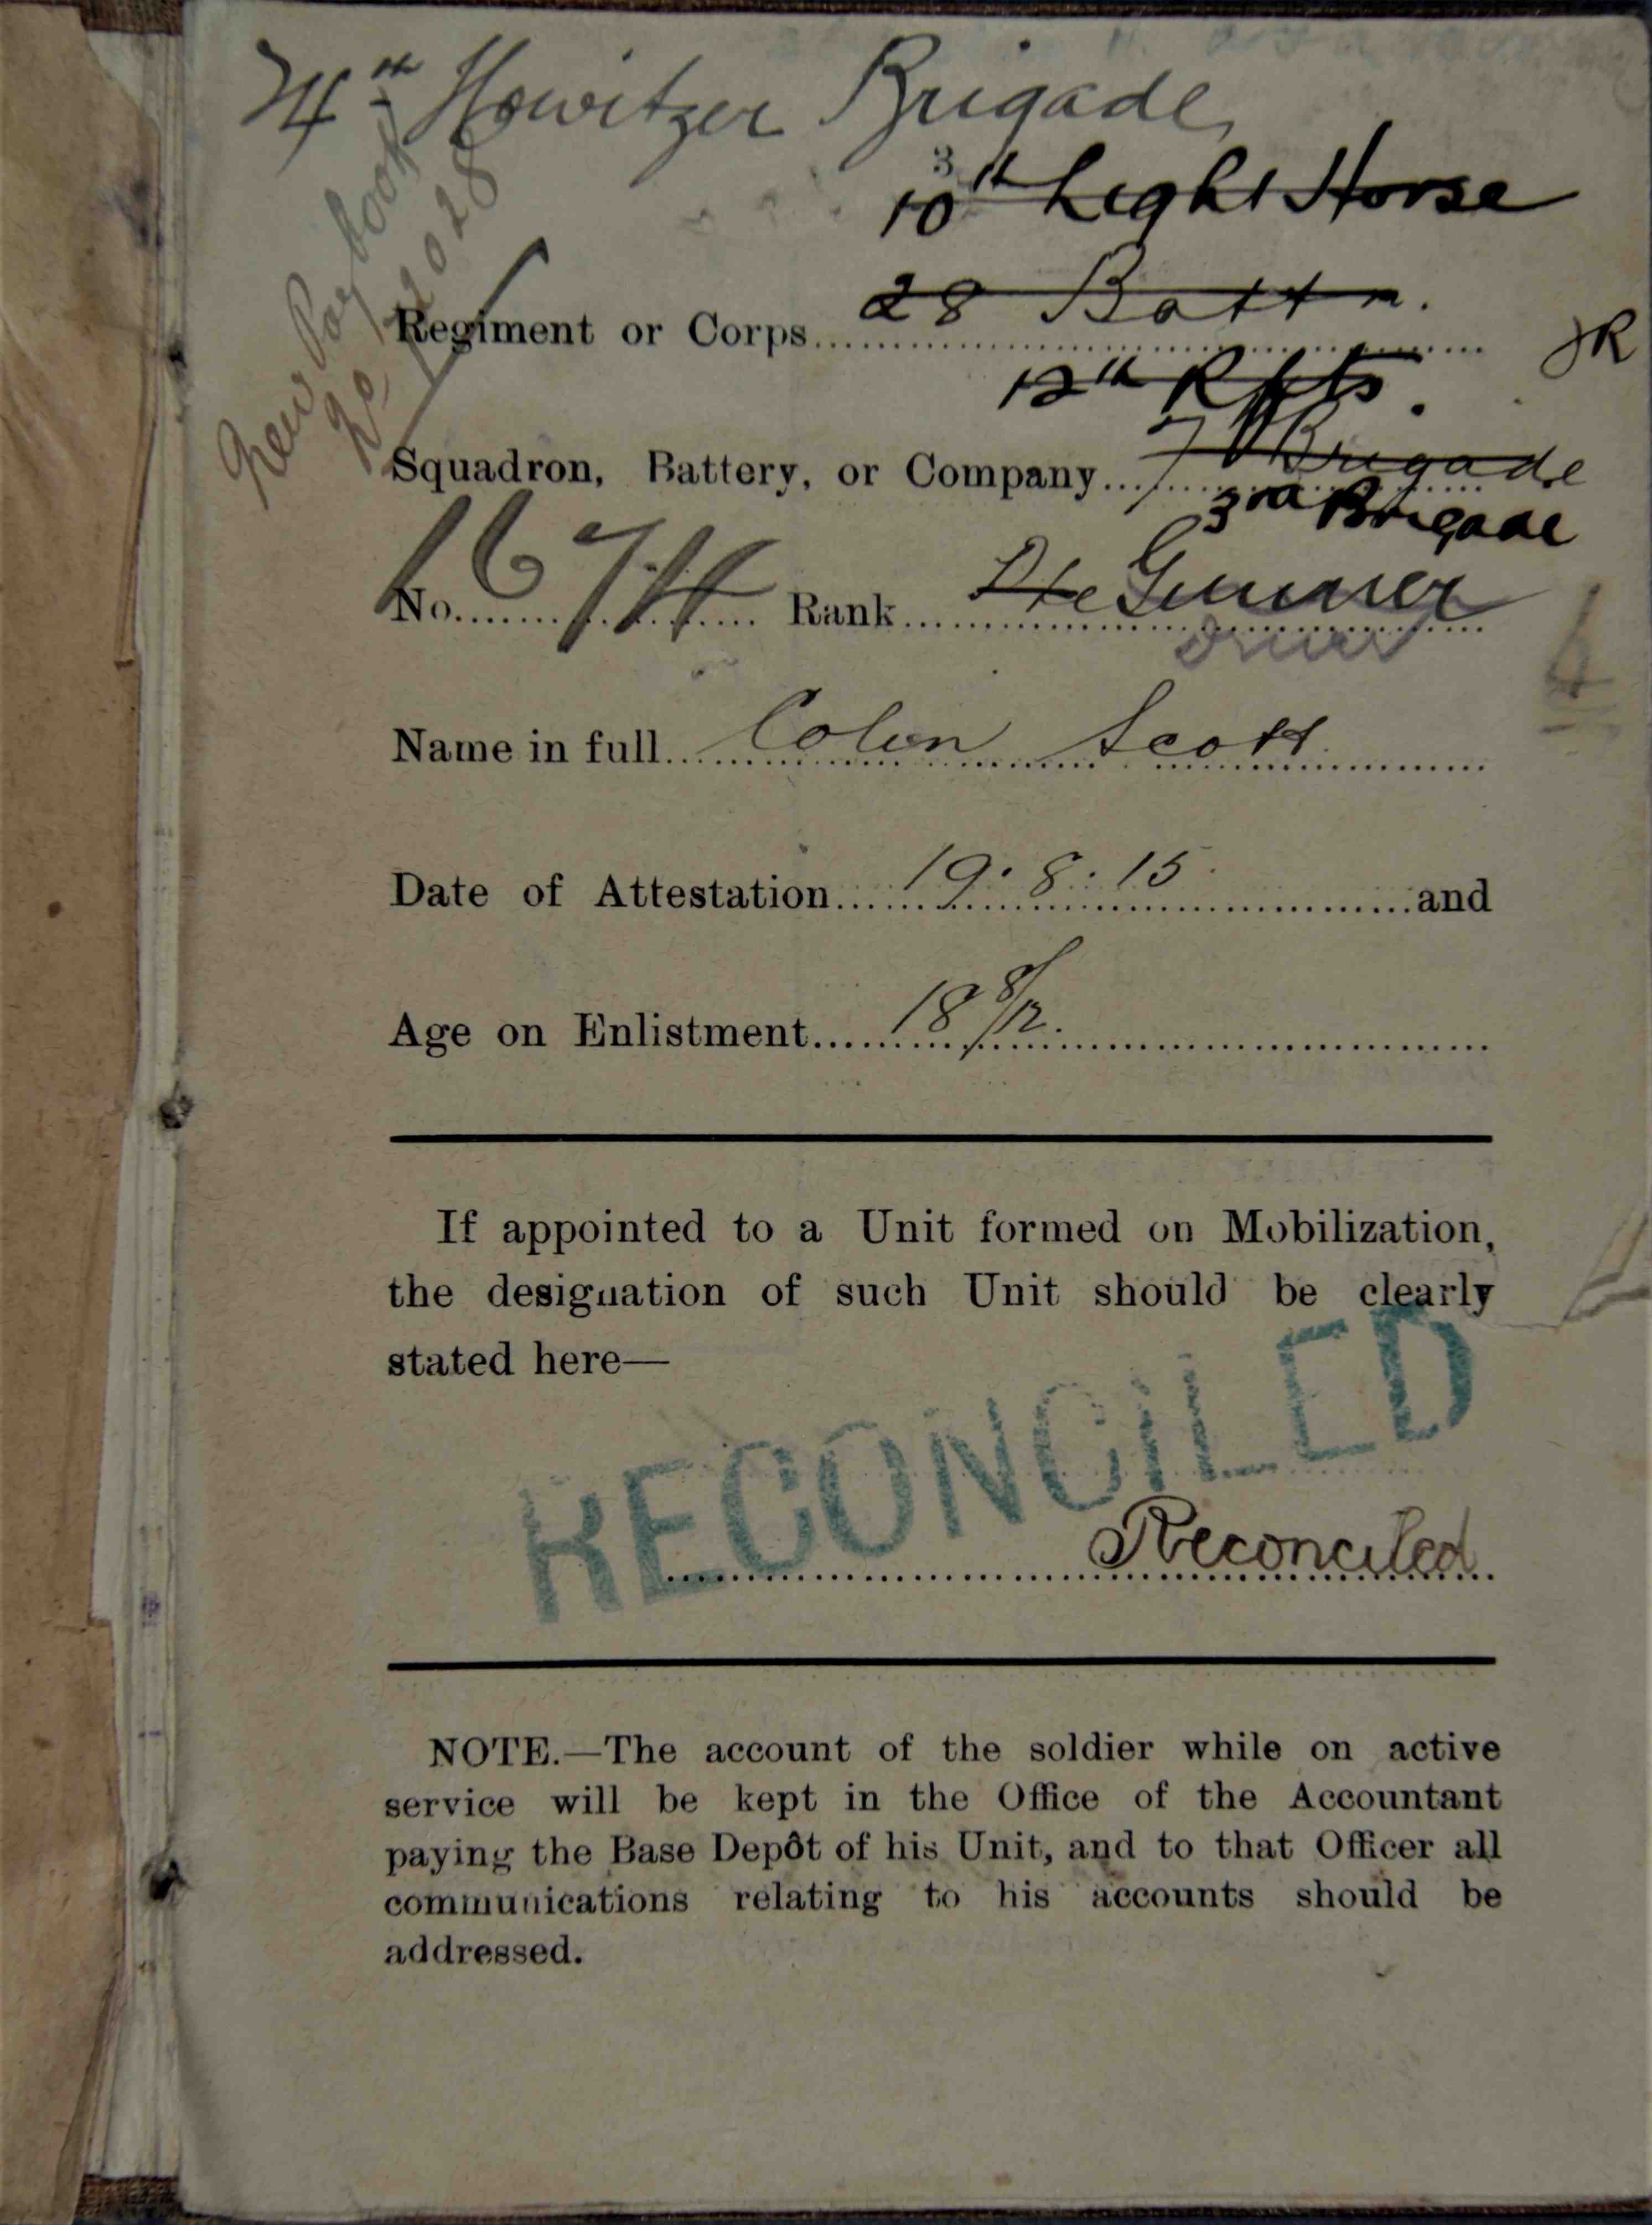 Howitzer Brigade
10th Light Horse
28 Battn.
Regiment or Corps
JR
12th Rfts.
New Pay book
Brigade
Squadron, Battery, or Company
3rd Brigade
No. 1674 Rank Pte Gunner
Driver
Name in full Colin Scott
Date of Attestation 19.8.15 and
Age on Enlistment 18 8/12.
If appointed to a Unit formed on Mobilization,
the designation of such Unit should be clearly
stated here—
RECONCILED
Reconciled
NOTE.—The account of the soldier while on active
service will be kept in the Office of the Accountant
paying the Base Depôt of his Unit, and to that Officer all
communications relating to his accounts should be
addressed.